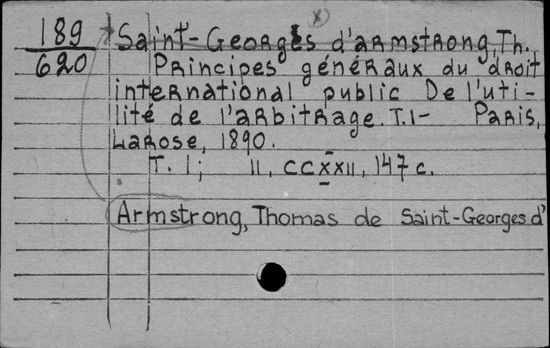 189
620
Saint-Georges d'armstrong, Th.
Principes généraux du droit
international public De l'uti-
lité de l'arbitrage. T.1- Paris,
Larose, 1890.
T. 1; II, CCXXII, 147 c.
Armstrong, Thomas de Saint-Georges d'